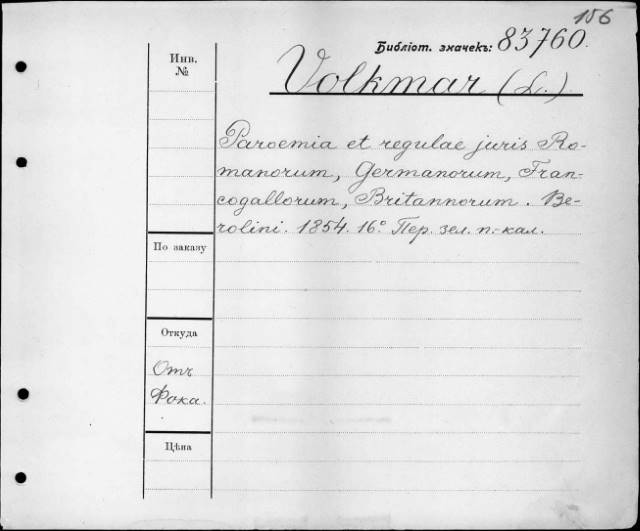 156
Библіот. значекъ: 83760.
Volkmar (L.)
Инв.
№
Paroemia et regulae juris Ro-
manorum, Germanorum, Fran-
cogallorum, Britannorum. Be-
rolini. 1854. 16° Пер. зел. п.-кал.
По заказу
Откуда
Отъ
Фока.
Цѣна